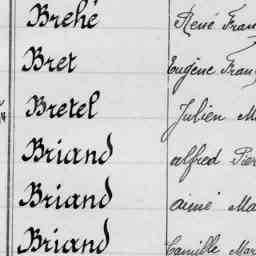 Brehé René Fran
Bret Eugène Fran
Bretel Julien M
Briand alfred Pier
Briand aimé Ma
Briand Camille Mar